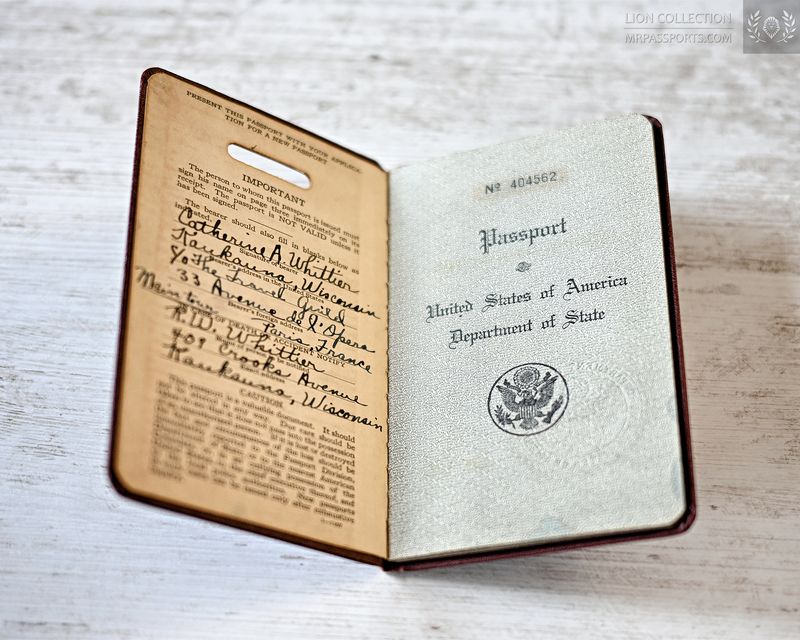 LION COLLECTION
MRPASSPORTS.COM
PRESENT THIS PASSPORT WITH YOUR APPLICA-
TION FOR A NEW PASSPORT
IMPORTANT
The person to whom this passport is issued must
sign his name on page three immediately on its
receipt. The passport is NOT VALID unless it
has been signed.
The bearer should also fill in blanks below as
indicated.
Catherine A. Whittier
Signature of bearer
Kaukauna, Wisconsin
Bearer's address in the United States
c/o The Travel Guild
33 Avenue de l'Opera
Bearer's foreign address
Paris, France
IN CASE OF DEATH OR ACCIDENT NOTIFY
R.W. Whittier
Name of person to be notified
409 Crooks Avenue
Kaukauna, Wisconsin
CAUTION
This passport is a valuable document. It should
Nº 404562
Passport
United States of America
Department of State